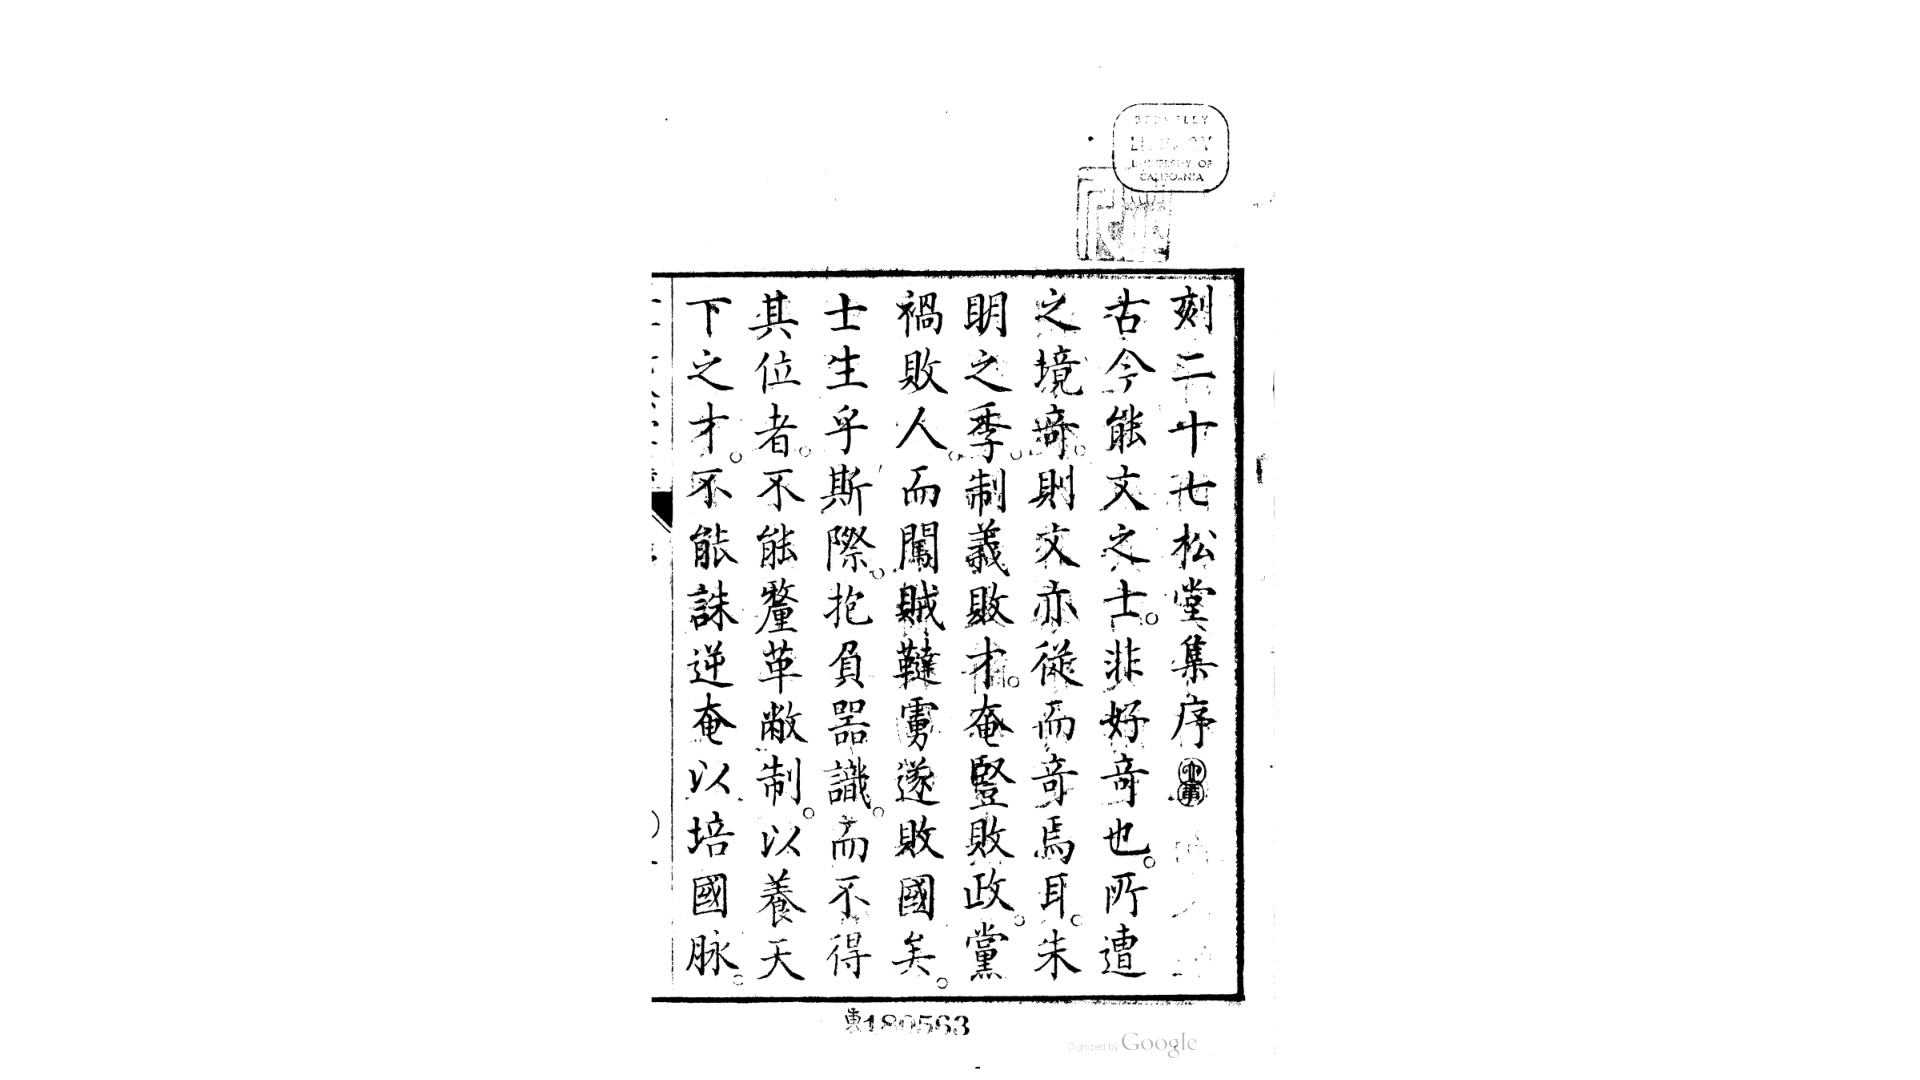 刻二十七松堂集序
古今能文之士。非好竒也。所遭
之境竒。則文亦從而竒焉耳。朱
明之季。制義敗才。奄豎敗政。黨
禍敗人。而闖賊韃虜遂敗國矣。
士生乎斯際。抱負器識。而不得
其位者。不能釐革敝制。以養天
下之才。不能誅逆奄以培國脉。
BERKELEY
LIBRARY
UNIVERSITY OF
CALIFORNIA
東180563
Digitized by Google